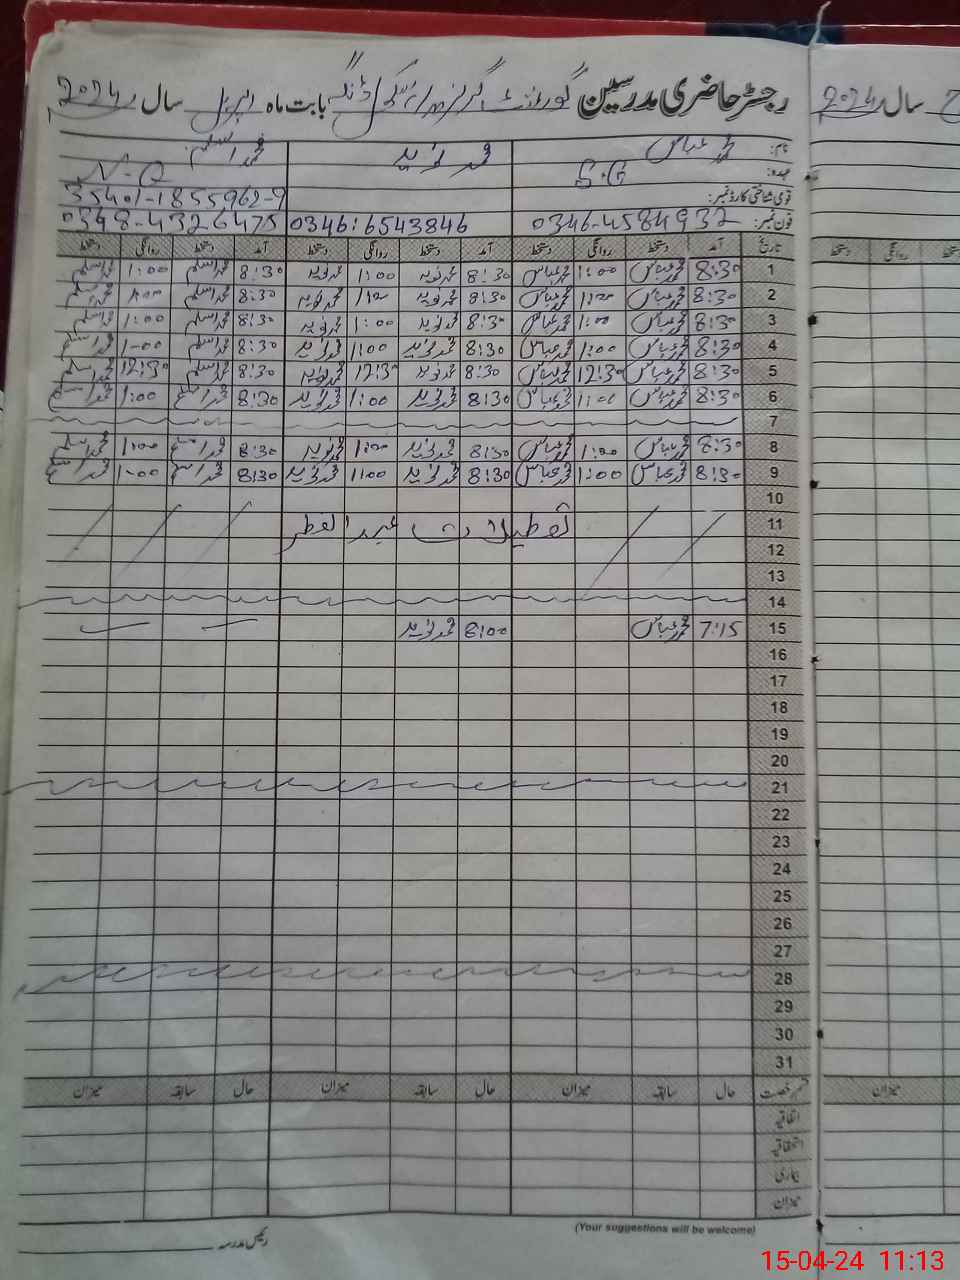 رجسٹر حاضری مدرسین گورنمنٹ گرلز بابت ماہ اپریل سال 2024ء
سال 2024ء
نام: محمد عباس محمد نوید محمد اسلم
عہدہ: S.G N-Q
قومی شناختی کارڈ نمبر: 35401-1855962-9
فون نمبر: 0346-4584932 0346:6543846 0348-4326475
تاریخ آمد دستخط روانگی دستخط آمد دستخط روانگی دستخط آمد دستخط روانگی دستخط
1 8:30 محمد عباس 1:00 محمد عباس 8:30 محمد نوید 1:00 محمد نوید 8:30 محمد اسلم 1:00 محمد اسلم
2 8:30 محمد عباس 1:00 محمد عباس 8:30 محمد نوید 1:00 محمد نوید 8:30 محمد اسلم 1:00 محمد اسلم
3 8:30 محمد عباس 1:00 محمد عباس 8:30 محمد نوید 1:00 محمد نوید 8:30 محمد اسلم 1:00 محمد اسلم
4 8:30 محمد عباس 1:00 محمد عباس 8:30 محمد نوید 1:00 محمد نوید 8:30 محمد اسلم 1-00 محمد اسلم
5 8:30 محمد عباس 12:30 محمد عباس 8:30 محمد نوید 12:30 محمد نوید 8:30 محمد اسلم 12:30 محمد اسلم
6 8:30 محمد عباس 1:00 محمد عباس 8:30 محمد نوید 1:00 محمد نوید 8:30 محمد اسلم 1:00 محمد اسلم
7
8 8:30 محمد عباس 1:00 محمد عباس 8:30 محمد نوید 1:00 محمد نوید 8:30 محمد اسلم 1:00 محمد اسلم
9 8:30 محمد عباس 1:00 محمد عباس 8:30 محمد نوید 1:00 محمد نوید 8:30 محمد اسلم 1-00 محمد اسلم
10
11 تعطیلات عید الفطر
12
13
14
15 7:15 محمد عباس 8:00 محمد نوید
16
17
18
19
20
21
22
23
24
25
26
27
28
29
30
31
قسم رخصت حال سابقہ میزان حال سابقہ میزان حال سابقہ میزان
اتفاقیہ
استحقاقیہ
بیماری
میزان
(Your suggestions will be welcome)
رئیس مدرسہ
دستخط روانگی دستخط
میزان
15-04-24 11:13